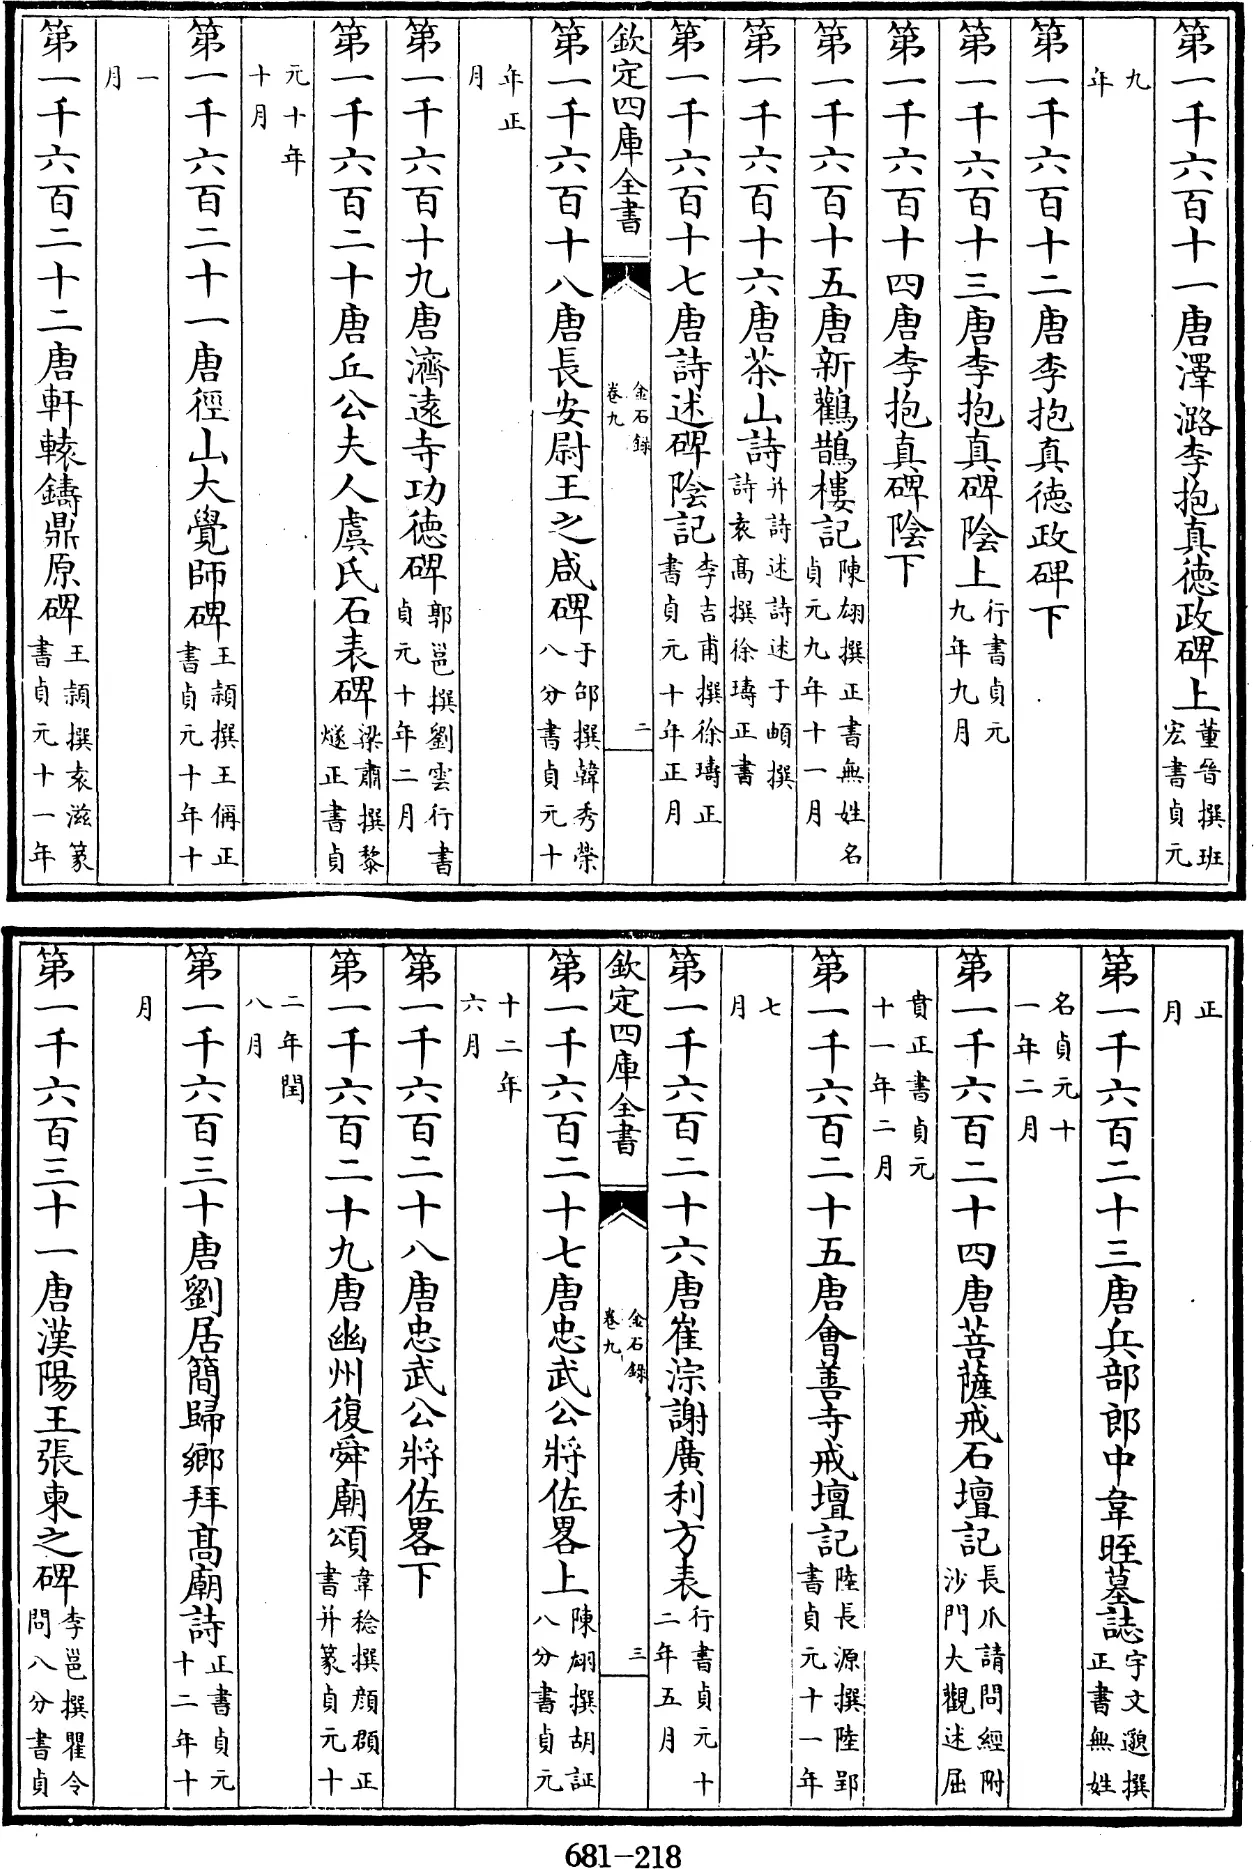 第一千六百十一唐澤潞李抱真徳政碑上董晉撰班宏書貞元
九年
第一千六百十二唐李抱真徳政碑下
第一千六百十三唐李抱真碑陰上行書貞元九年九月
第一千六百十四唐李抱真碑陰下
第一千六百十五唐新鸛鵲樓記陳翃撰正書無姓名貞元九年十一月
第一千六百十六唐茶山詩并詩述詩述于頔撰詩袁髙撰徐璹正書
第一千六百十七唐詩述碑陰記李吉甫撰徐璹正書貞元十年正月
欽定四庫全書 金石録卷九 二
第一千六百十八唐長安尉王之咸碑于邵撰韓秀榮八分書貞元十
年正月
第一千六百十九唐濟遠寺功徳碑郭邕撰劉雲行書貞元十年二月
第一千六百二十唐丘公夫人虞氏石表碑梁肅撰黎燧正書貞
元十年十月
第一千六百二十一唐徑山大覺師碑王潁撰王偁正書貞元十年十
一月
第一千六百二十二唐軒轅鑄鼎原碑王潁撰袁滋篆書貞元十一年
正月
第一千六百二十三唐兵部郎中韋晊墓誌宇文邈撰正書無姓
名貞元十一年二月
第一千六百二十四唐菩薩戒石壇記長爪請問經附沙門大觀述屈
賁正書貞元十一年二月
第一千六百二十五唐會善寺戒壇記陸長源撰陸郢書貞元十一年
七月
第一千六百二十六唐崔淙謝廣利方表行書貞元十二年五月
欽定四庫全書 金石録卷九 三
第一千六百二十七唐忠武公將佐畧上陳翃撰胡証八分書貞元
十二年六月
第一千六百二十八唐忠武公將佐畧下
第一千六百二十九唐幽州復舜廟頌韋稔撰顔頵正書并篆貞元十
二年閏八月
第一千六百三十唐劉居簡歸鄉拜髙廟詩正書貞元十二年十
月
第一千六百三十一唐漢陽王張柬之碑李邕撰瞿令問八分書貞
681-218